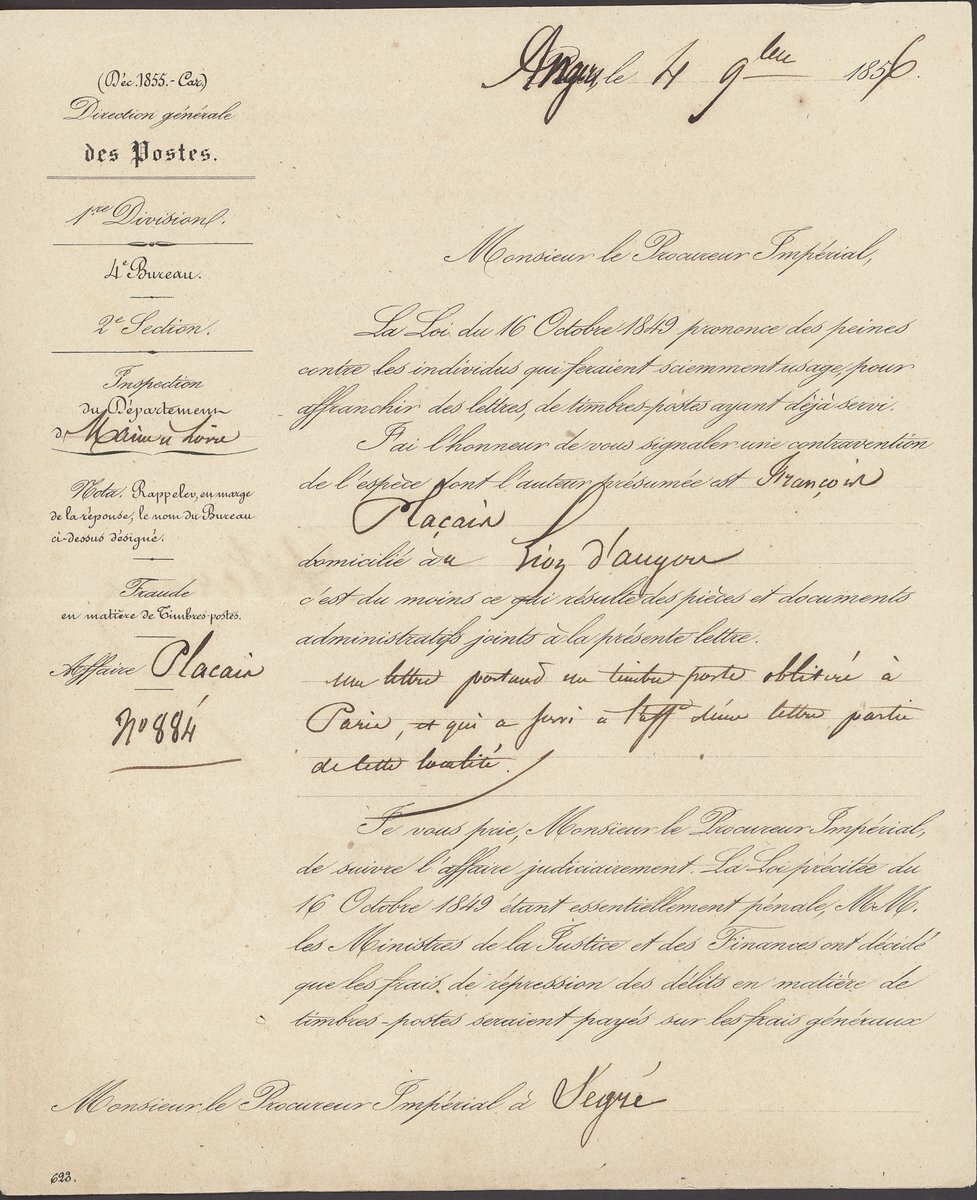 Angers, le 4 9bre 1856.
(Déc. 1855.-Car.)
Direction générale
des Postes.
1re Division.
4e Bureau.
2e Section.
Inspection
du Département
de Maine et Loire
Nota. Rappeler, en marge
de la réponse, le nom du Bureau
ci-dessus désigné.
Fraude
en matière de Timbres-postes.
Affaire Placais
No 884
Monsieur le Procureur Impérial,
La Loi du 16 Octobre 1849 prononce des peines
contre les individus qui feraient sciemment usage, pour
affranchir des lettres, de timbres-postes ayant déjà servi.
J'ai l'honneur de vous signaler une contravention
de l'espèce dont l'auteur présumé est François
Plaçais
domicilié au Lion d'angers
c'est du moins ce qui résulte des pièces et documents
administratifs joints à la présente lettre.
une lettre portant un timbre poste oblitéré à
Paris, et qui a servi à l'afft d'une lettre partie
de cette localité.
Je vous prie, Monsieur le Procureur Impérial,
de suivre l'affaire judiciairement. La Loi précitée du
16 Octobre 1849 étant essentiellement pénale, M.M.
les Ministres de la Justice et des Finances ont décidé
que les frais de répression des délits en matière de
timbres-postes seraient payés sur les frais généraux
Monsieur le Procureur Impérial à Segré
693.